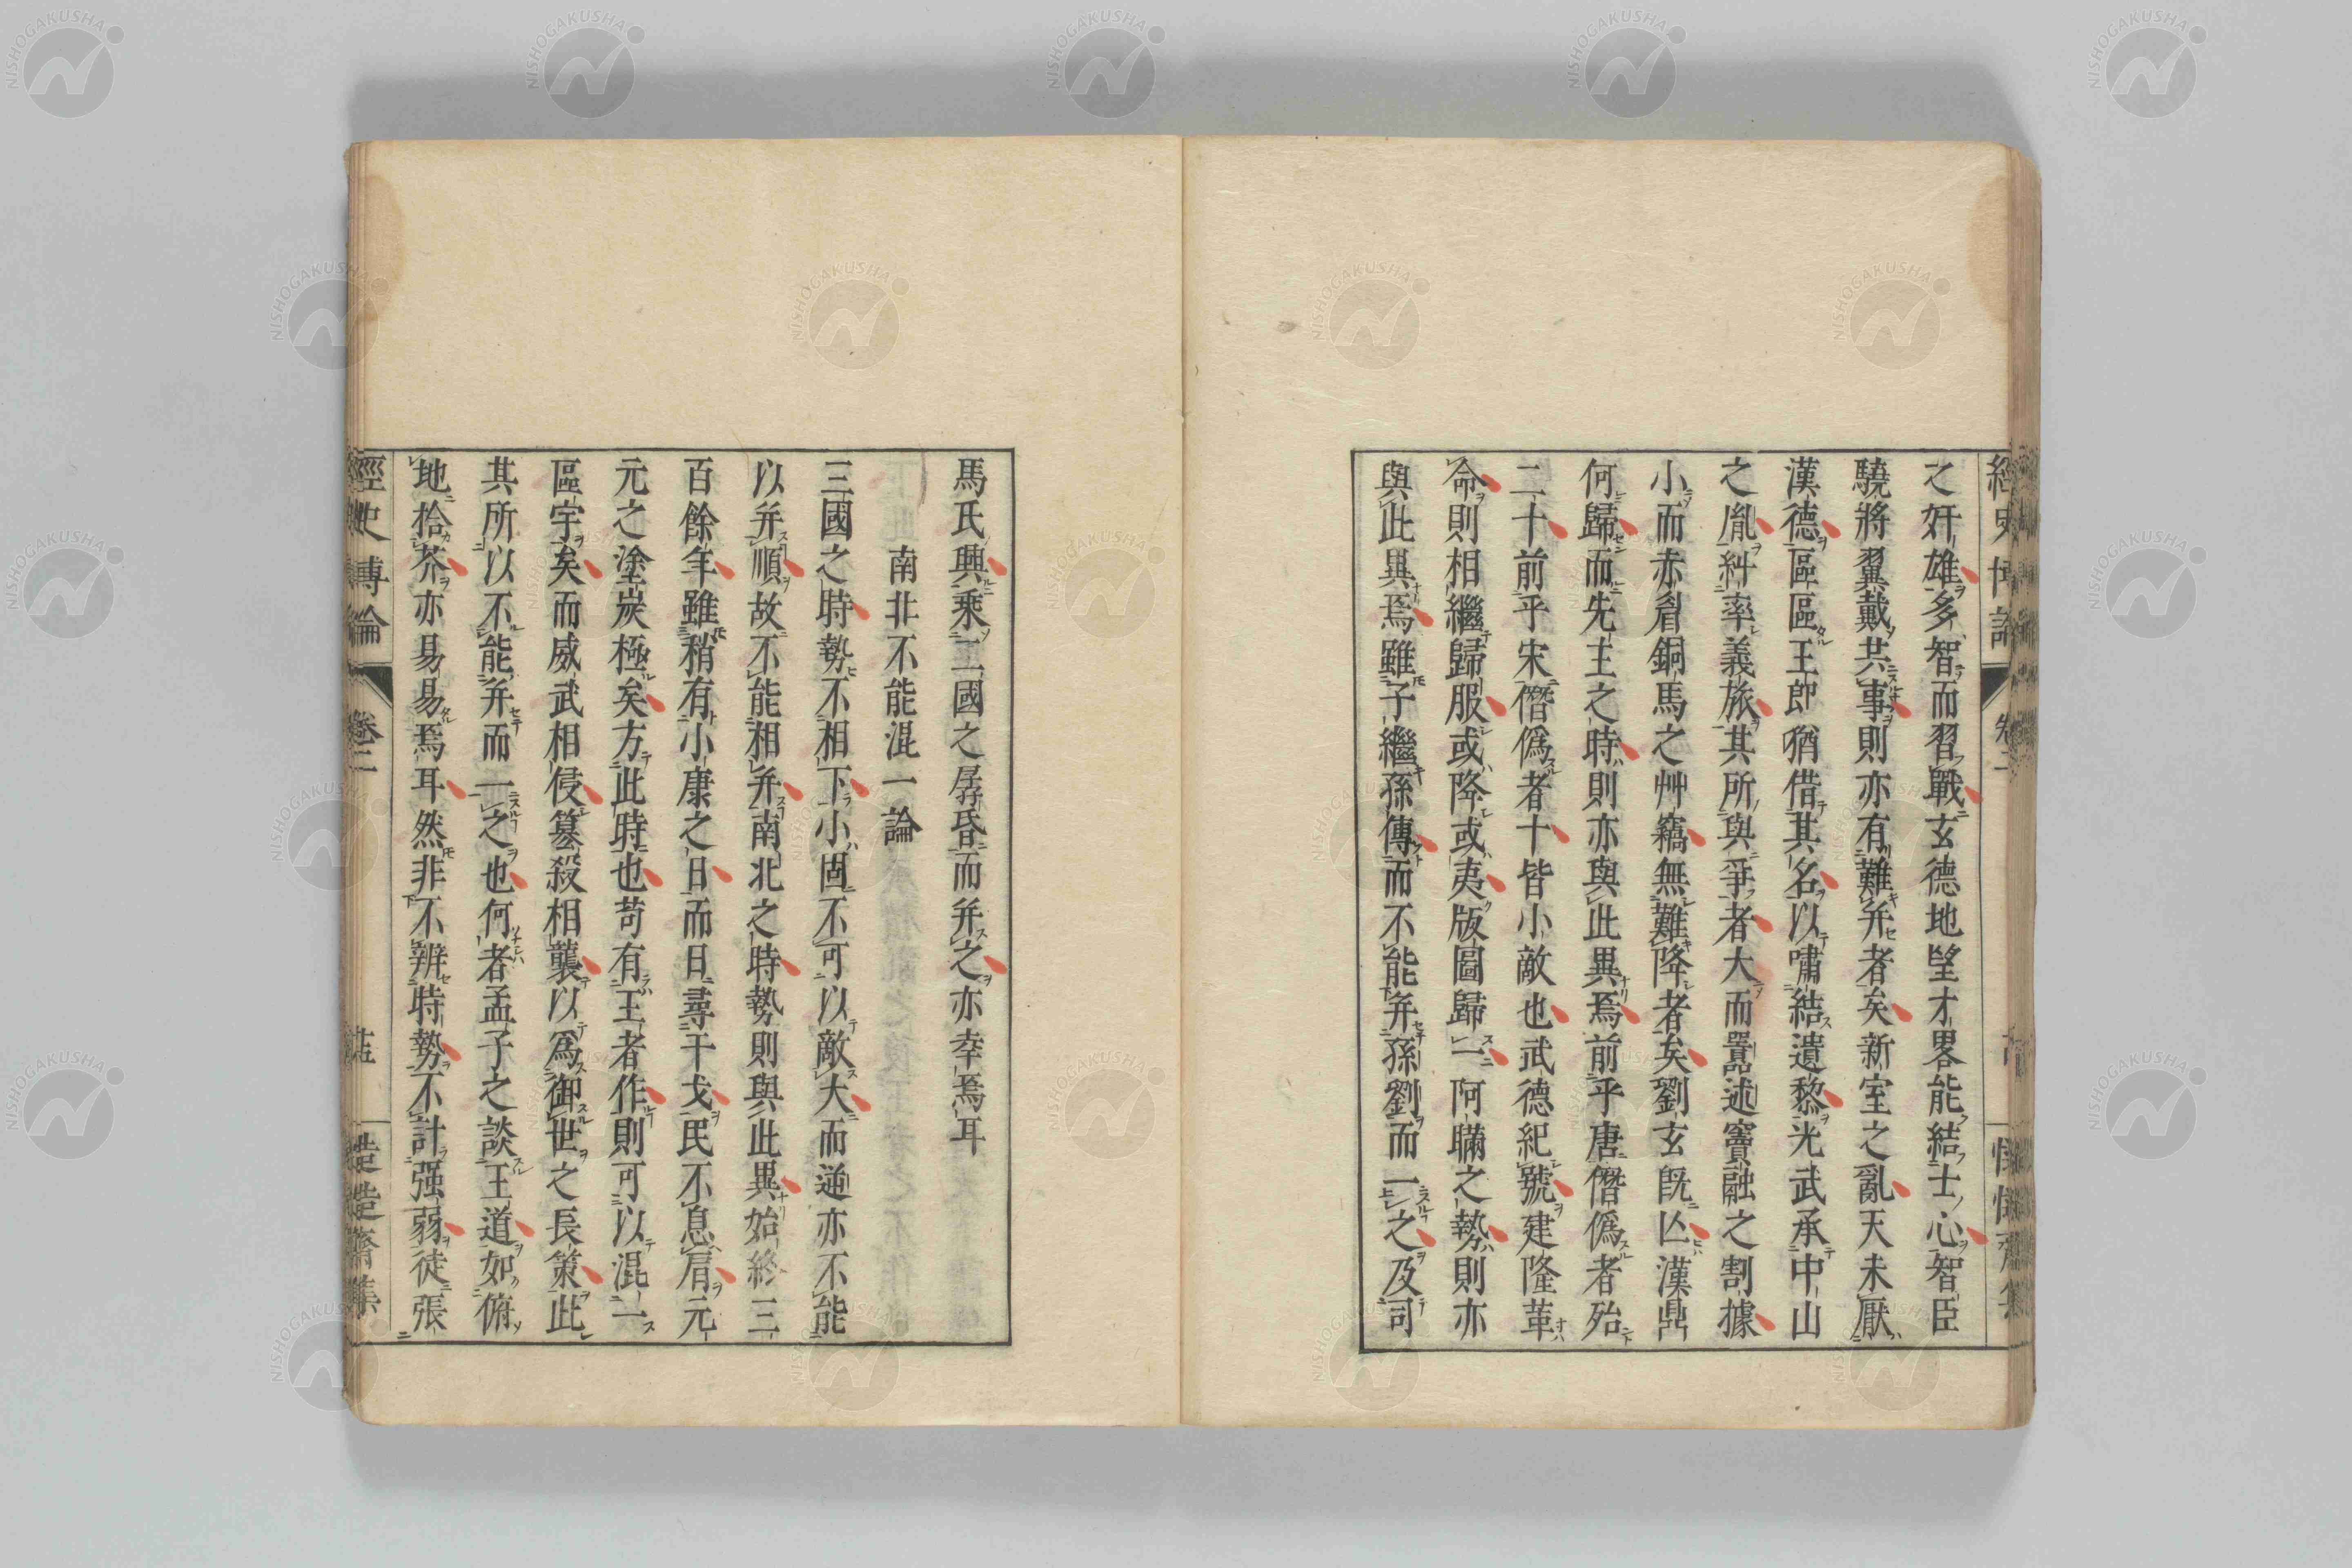 之奸雄多智而習戰玄德地望才畧能結士心智臣
驍將翼戴共事則亦有難幷者矣新室之亂天未厭
漢德區區王郎猶借其名以嘯結遺黎光武承中山
之胤糾率義旅其所與爭者大而囂述竇融之割據
小而赤眉銅馬之艸竊無難降者矣劉玄旣亾漢鼎
何歸而先主之時則亦與此異焉前乎唐僭僞者殆
二十前乎宋僭僞者十皆小敵也武德紀號建隆革
命則相繼歸服或降或夷版圖歸一阿瞞之勢則亦
與此異焉雖子繼孫傳而不能幷孫劉而一之及司
馬氏興乘二國之孱昏而幷之亦幸焉耳
南北不能混一論
三國之時勢不相下小固不可以敵大而逆亦不能
以幷順故不能相幷南北之時勢則與此異始終三
百餘年雖稍有小康之日而日尋干戈民不息肩元
元之塗炭極矣方此時也苟有王者作則可以混一
區宇矣而威武相侵簒殺相襲以爲御世之長策此
其所以不能幷而一之也何者孟子之談王道如俯
地拾芥亦易易焉耳然非不辨時勢不計强弱徒張
經史博論
卷二